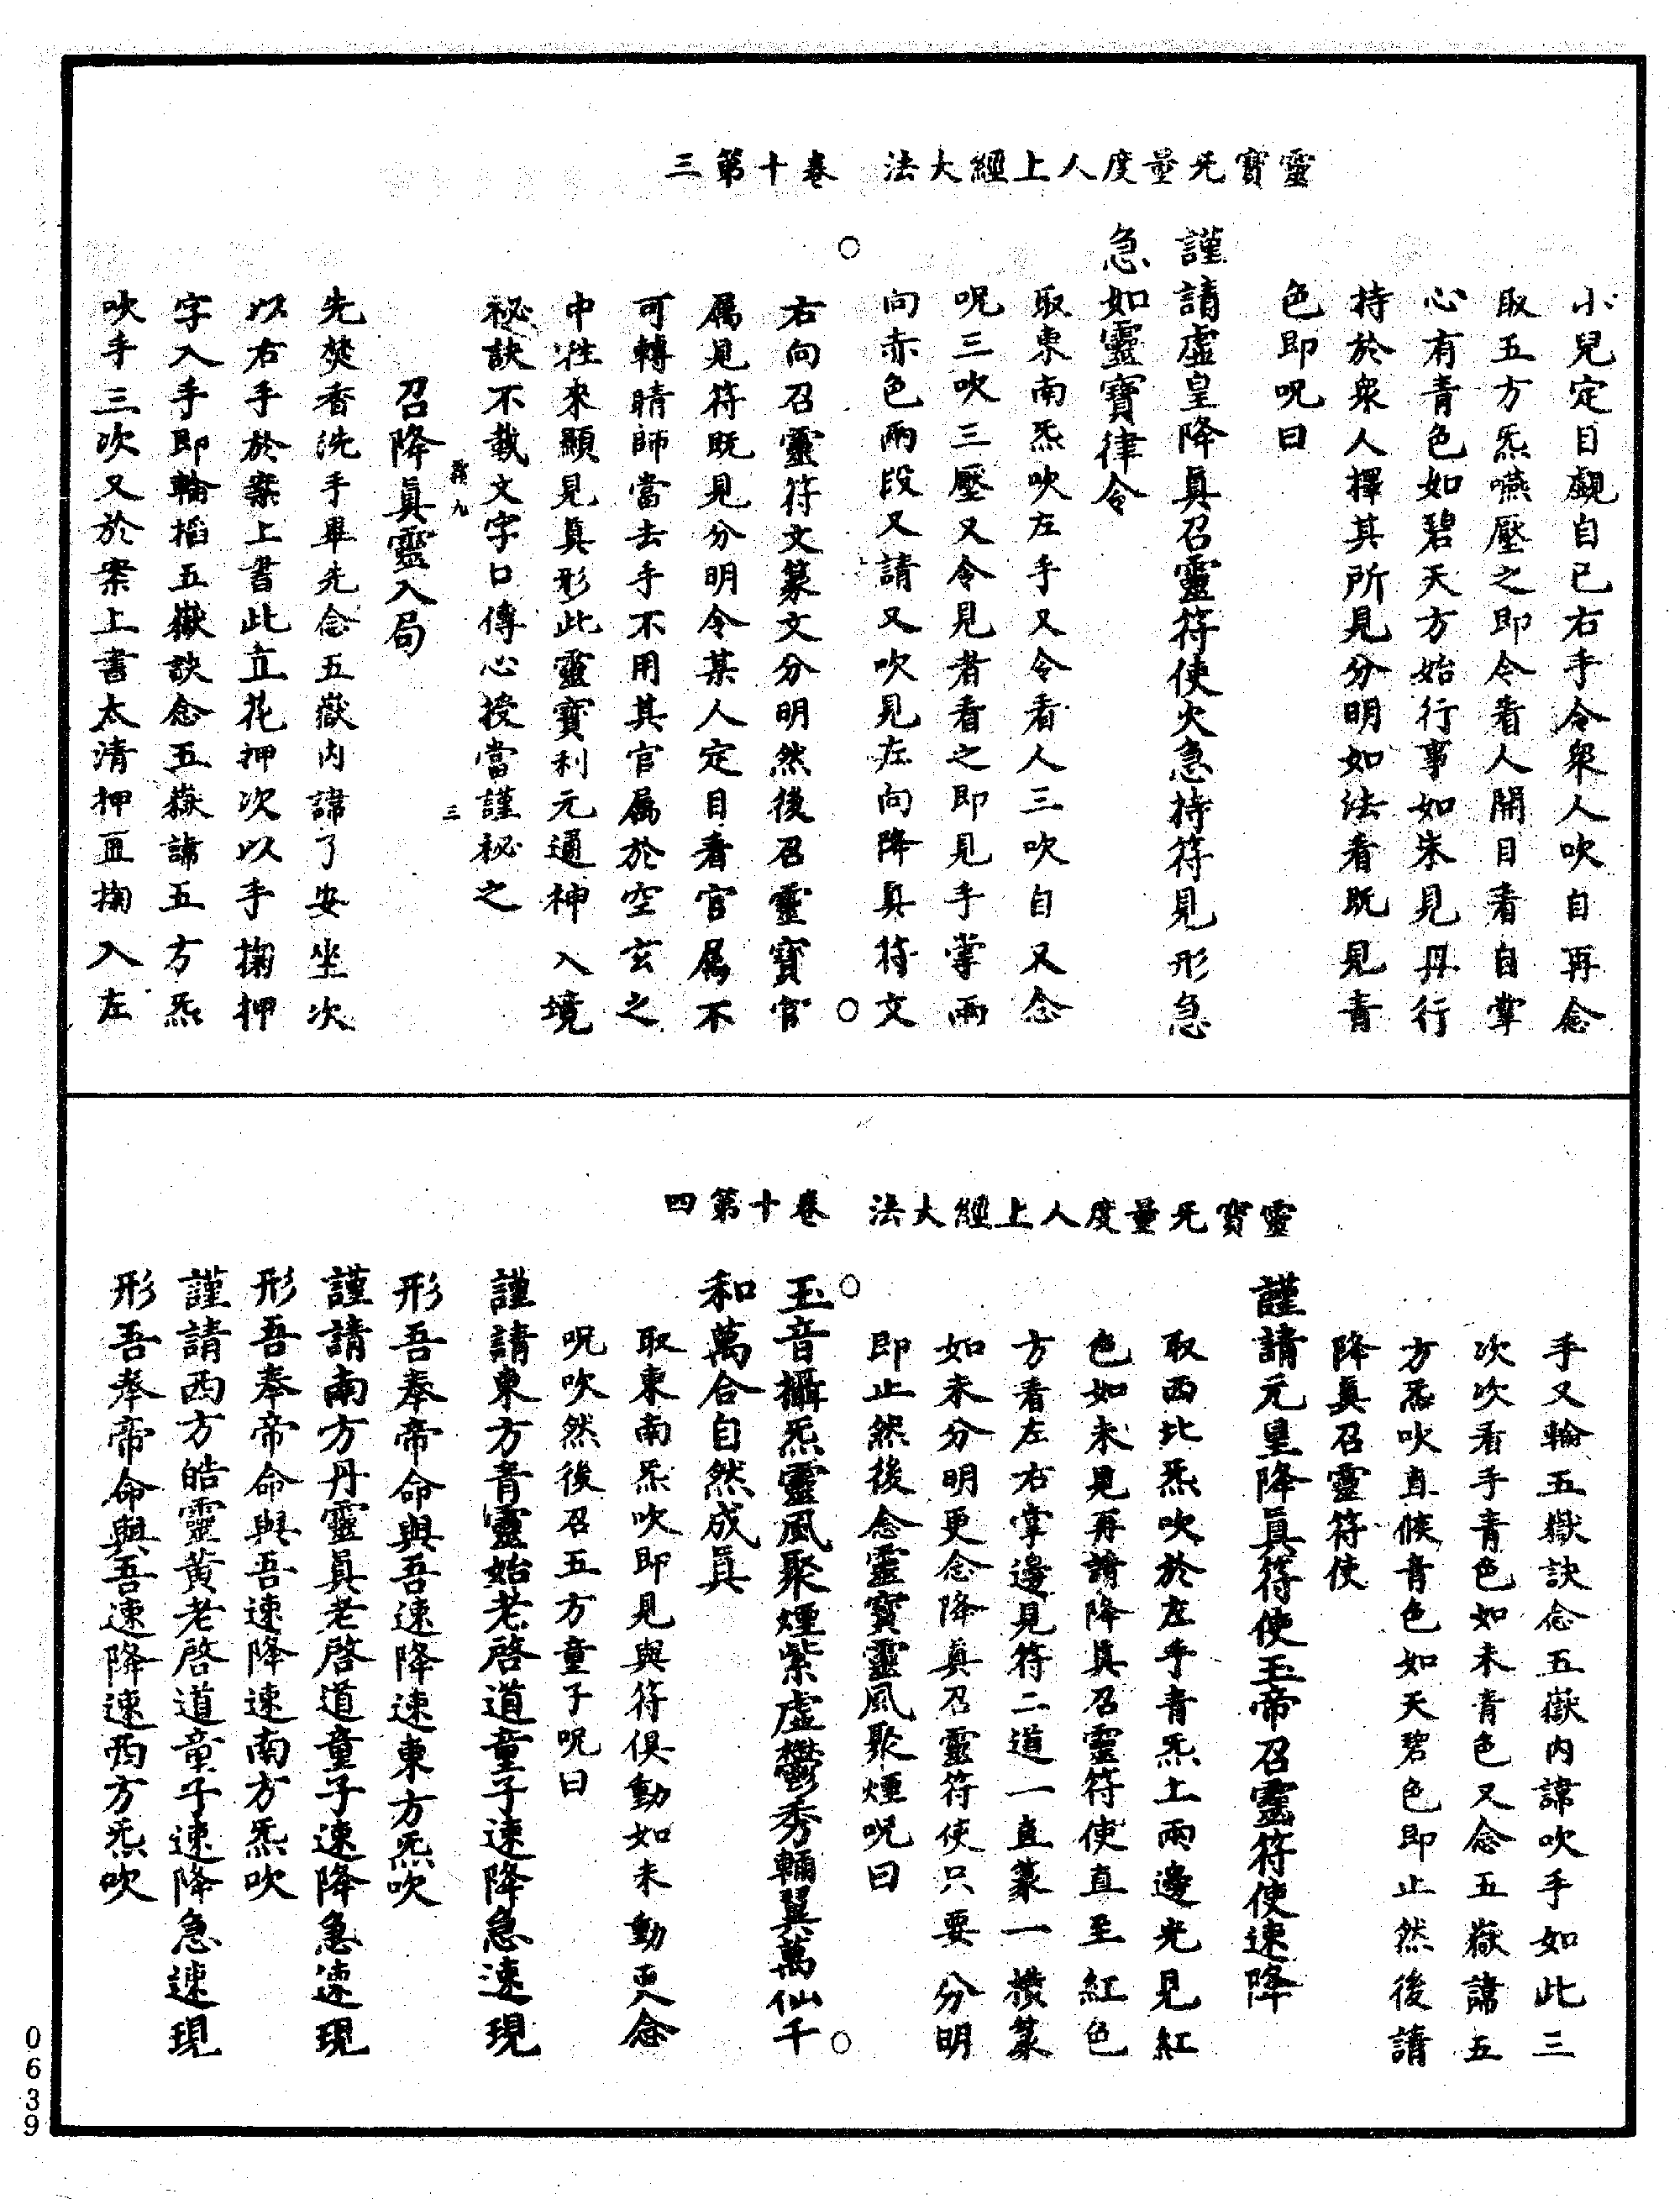 靈寶无量度人上經大法　卷十第三
小兒定目覷自已右手令衆人吹自再念
取五方炁嚥壓之即令看人開目看自掌
心有青色如碧天方始行事如朱見丹行
持於衆人擇其所見分明如法看既見青
色即呪曰
謹請虛皇降眞召靈符使火急持符見形急
急如靈寶律令
取東南炁吹左手又令看人三吹自又念
呪三吹三壓又令見者看之即見手掌兩
向赤色兩段又請又吹見左向降眞符文
右向召靈符文篆文分明然後召靈寶官
属見符既見分明令某人定目看官属不
可轉睛師當去手不用其官属於空玄之
中徃來顯見眞形此靈寶利元通神入境
秘訣不載文字口傳心授當謹秘之
義九　三
召降眞靈入局
先焚香洗手畢先念五嶽內諱了安坐次
以右手於案上書此立花押次以手掬押
字入手即輪搯五嶽訣念五嶽諱五方炁
吹手三次又於案上書太清押直掬入左
靈寶无量度人上經大法　卷十第四
手又輪五嶽訣念五嶽內諱吹手如此三
次次看手青色如未青色又念五嶽諱五
方炁吹直候青色如天碧色即止然後請
降眞召靈符使
謹請元皇降眞符使玉帝召靈符使速降
取西北炁吹於左手青炁上兩邊光見紅
色如未見再請降眞召靈符使直至紅色
方看左右掌邊見符二道一直篆一横篆
如未分明更念降眞召靈符使只要分明
即止然後念靈寶靈風聚煙呪曰
玉音攝炁靈風聚煙紫虛欝秀輔翼萬仙千
和萬合自然成眞
取東南炁吹即見與符俱動如未動更念
呪吹然後召五方童子呪曰
謹請東方青靈始老啓道童子速降急速現
形吾奉帝命與吾速降速東方炁吹
謹請南方丹靈眞老啓道童子速降急速現
形吾奉帝命與吾速降速南方炁吹
謹請西方皓靈黄老啓道童子速降急速現
形吾奉帝命與吾速降速西方炁吹
0639